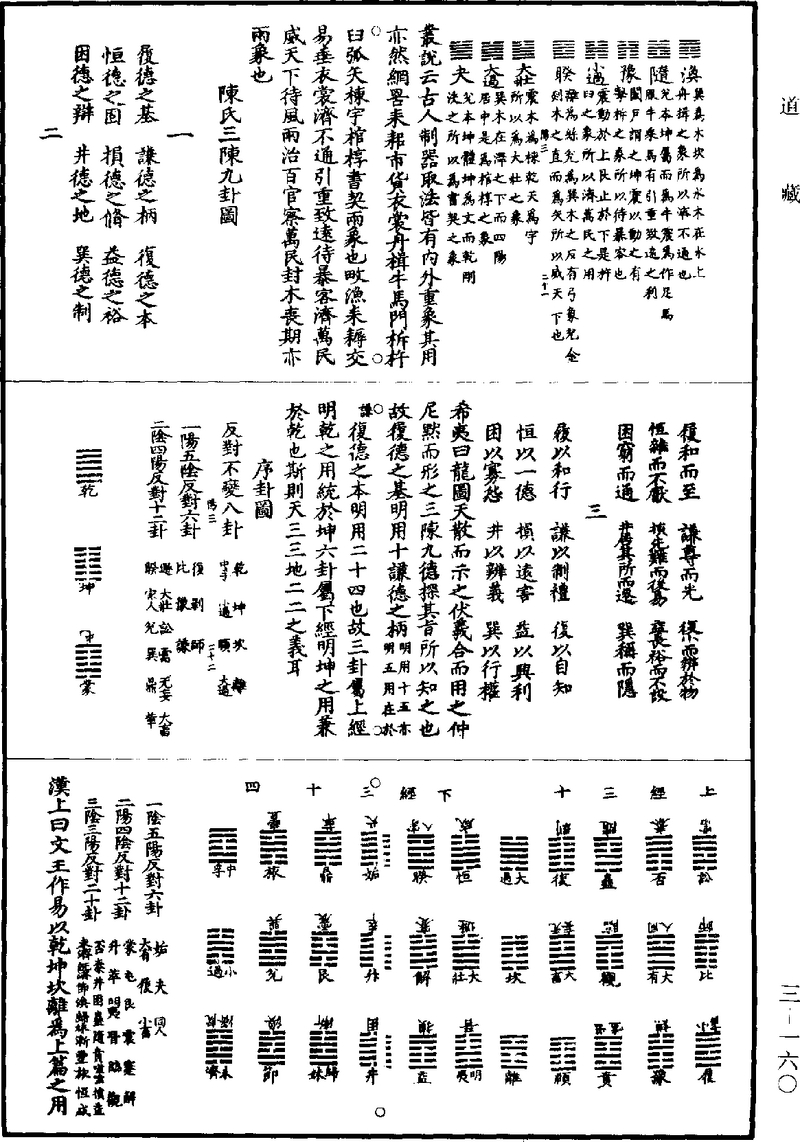 道藏
三－一六〇
渙 巽爲木坎爲水木在水上
舟楫之象所以濟不通也
隨 兌本坤屬而爲牛震爲作足馬
服牛乘馬有引重致遠之利
豫 闔戶謂之坤震以動之有
擊柝之象所以待暴客也
小過 震動於上艮止於下是杵
臼之象所以濟萬民之用
睽 離爲絲兌爲巽木之反有弓象兌金
剡木之直而爲矢所以威天下也
陽三 二十一
大壯 震木爲棟乾天爲宇
所以爲大壯之象
大過 巽木在澤之下而四陽
居中是爲棺椁之象
夬 兌本坤體坤爲文而乾剛
決之所以爲書契之象
叢說云古人制器取法皆有內外重象其用
亦然網罟耒耜市貨衣裳舟楫牛馬門柝杵
臼弧矢棟宇棺椁書契兩象也畋漁耒耨交
易垂衣裳濟不通引重致遠待暴客濟萬民
威天下待風雨治百官察萬民封木喪期亦
兩象也
陳氏三陳九卦圖
一
履德之基 謙德之柄 復德之本
恒德之固 損德之脩 益德之裕
困德之辯 井德之地 巽德之制
二
履和而至 謙尊而光 復小而辨於物
恒雜而不厭 損先難而後易 益長裕而不設
困窮而通 井居其所而遷 巽稱而隱
三
履以和行 謙以制禮 復以自知
恒以一德 損以遠害 益以興利
困以寡怨 井以辨義 巽以行權
希夷曰龍圖天散而示之伏羲合而用之仲
尼默而形之三陳九德探其旨所以知之也
故履德之基明用十謙德之柄明用十五亦
明五用在於
謙
復德之本明用二十四也故三卦屬上經
明乾之用統於坤六卦屬下經明坤之用兼
於乾也斯則天三三地二二之義耳
序卦圖
反對不變八卦 乾 坤 坎 離
中孚 小過 頤 大過
陽三 二十二
一陽五陰反對六卦 復 剝 師
比 豫 謙
二陰四陽反對十二卦 遯 大壯 訟 需 无妄 大畜
睽 家人 兌 巽 鼎 革
乾
坤
屯
蒙
上經三十
下經三十四
需 泰 隨 剝 咸 家人 夬 革 豐
訟 否 蠱 復 大過 恒 睽 姤 鼎 旅 中孚
師 同人 臨 无妄 遯 蹇 萃 震 巽
比 大有 觀 大畜 坎 大壯 解 升 艮 兌 小過
小畜 謙 噬嗑 晉 損 困 漸 渙 既濟
履 豫 賁 頤 離 明夷 益 井 歸妹 節 未濟
一陰五陽反對六卦 姤 夬 同人
大有 履 小畜
二陽四陰反對十二卦 蒙 屯 艮 震 蹇 解
升 萃 明夷 晉 臨 觀
三陰三陽反對二十卦 否泰井困蠱隨賁噬嗑損益
未濟既濟節渙歸妹漸豐旅恒咸
漢上曰文王作易以乾坤坎離爲上篇之用